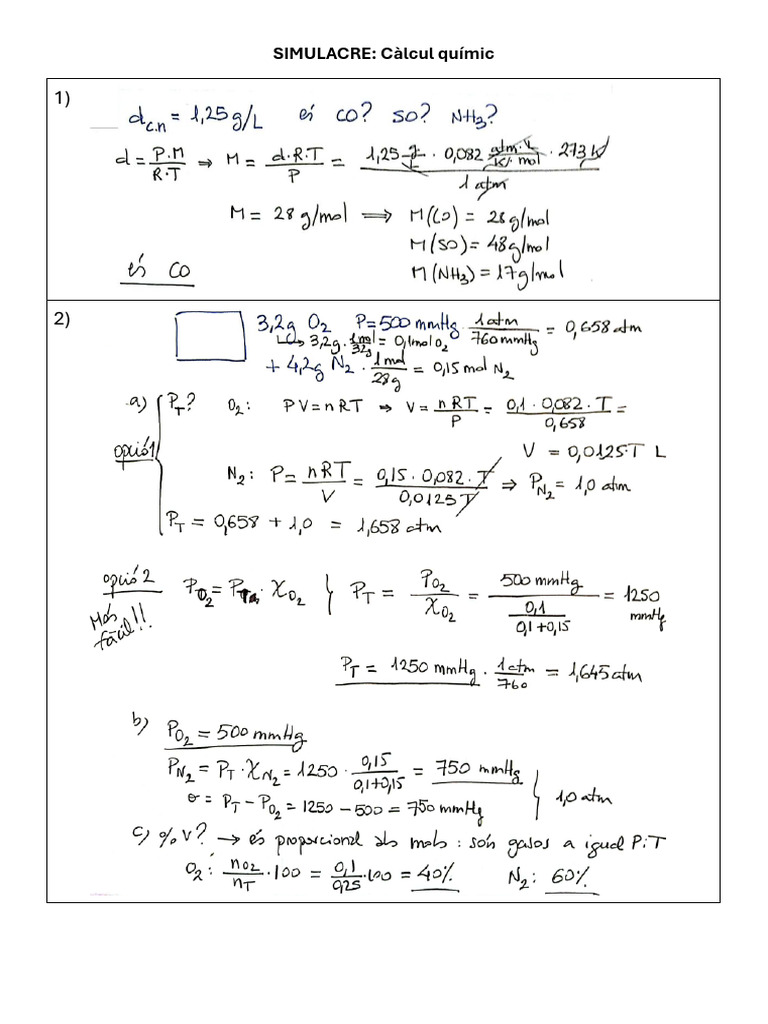 SIMULACRE: Càlcul químic
1)
d_c.n = 1,25 g/L és CO? SO? NH₃?
d = P·M / R·T ⇒ M = d·R·T / P = 1,25 g/L · 0,082 atm·L / K·mol · 273 K / 1 atm
M = 28 g/mol ⟹ M(CO) = 28 g/mol
M(SO) = 48 g/mol
és CO M(NH₃) = 17 g/mol
2)
3,2g O₂ P = 500 mmHg · 1 atm / 760 mmHg = 0,658 atm
↳ 3,2g · 1 mol / 32g = 0,1 mol O₂
+ 4,2g N₂ · 1 mol / 28g = 0,15 mol N₂
a) P_T? O₂: PV = nRT ⇒ V = nRT / P = 0,1 · 0,082 · T / 0,658 =
opció 1 V = 0,0125·T L
N₂: P = nRT / V = 0,15 · 0,082 · T / 0,0125 T ⇒ P_N₂ = 1,0 atm
P_T = 0,658 + 1,0 = 1,658 atm
opció 2 P_O₂ = P_T · χ_O₂ } P_T = P_O₂ / χ_O₂ = 500 mmHg / (0,1 / 0,1+0,15) = 1250 mmHg
Més fàcil!!
P_T = 1250 mmHg · 1 atm / 760 = 1,645 atm
b) P_O₂ = 500 mmHg
P_N₂ = P_T · χ_N₂ = 1250 · 0,15 / 0,1+0,15 = 750 mmHg
o = P_T − P_O₂ = 1250 − 500 = 750 mmHg } 1,0 atm
c) % V? → és proporcional als mols: són gasos a igual P i T
O₂: n_O₂ / n_T · 100 = 0,1 / 0,25 · 100 = 40% N₂: 60%